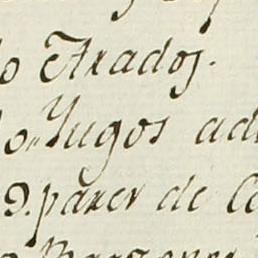 o Arados.
o Yugos ad
9. pares de C